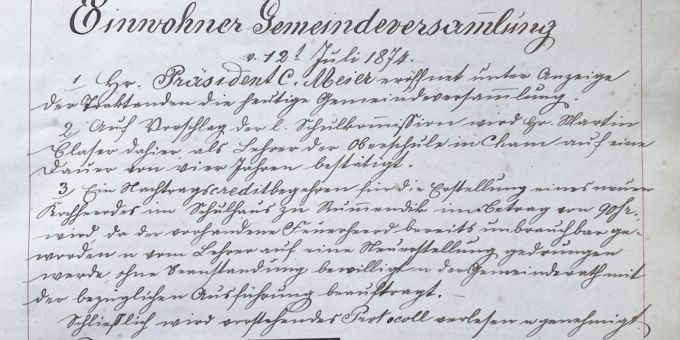 Einwohner Gemeindeversammlung
v. 12t Juli 1874.
1 Hr. Präsident C. Meier eröffnet unter Anzeige
der Traktanden die heutige Gemeindeversammlung.
2 Auf Vorschlag der l. Schulkommission wird Hr. Martin
Blaser dahier, als Lehrer der Oberschule in Cham auf eine
Dauer von vier Jahren bestätigt.
3 Ein Nachtragscreditbegehren für die Erstellung eines neuen
Kochheerdes im Schulhaus zu Rummendik im Betrag von 90 fr.
wird da der vorhandene Feuerheerd bereits unbrauchbar ge-
worden u vom Lehrer auf eine Neuerstellung gedrungen
werde, ohne Beanstandung bewilligt u der Gemeinderath mit
der bezüglichen Ausführung beauftragt. –
Schließlich wird vorstehendes Protocoll verlesen u genehmigt.